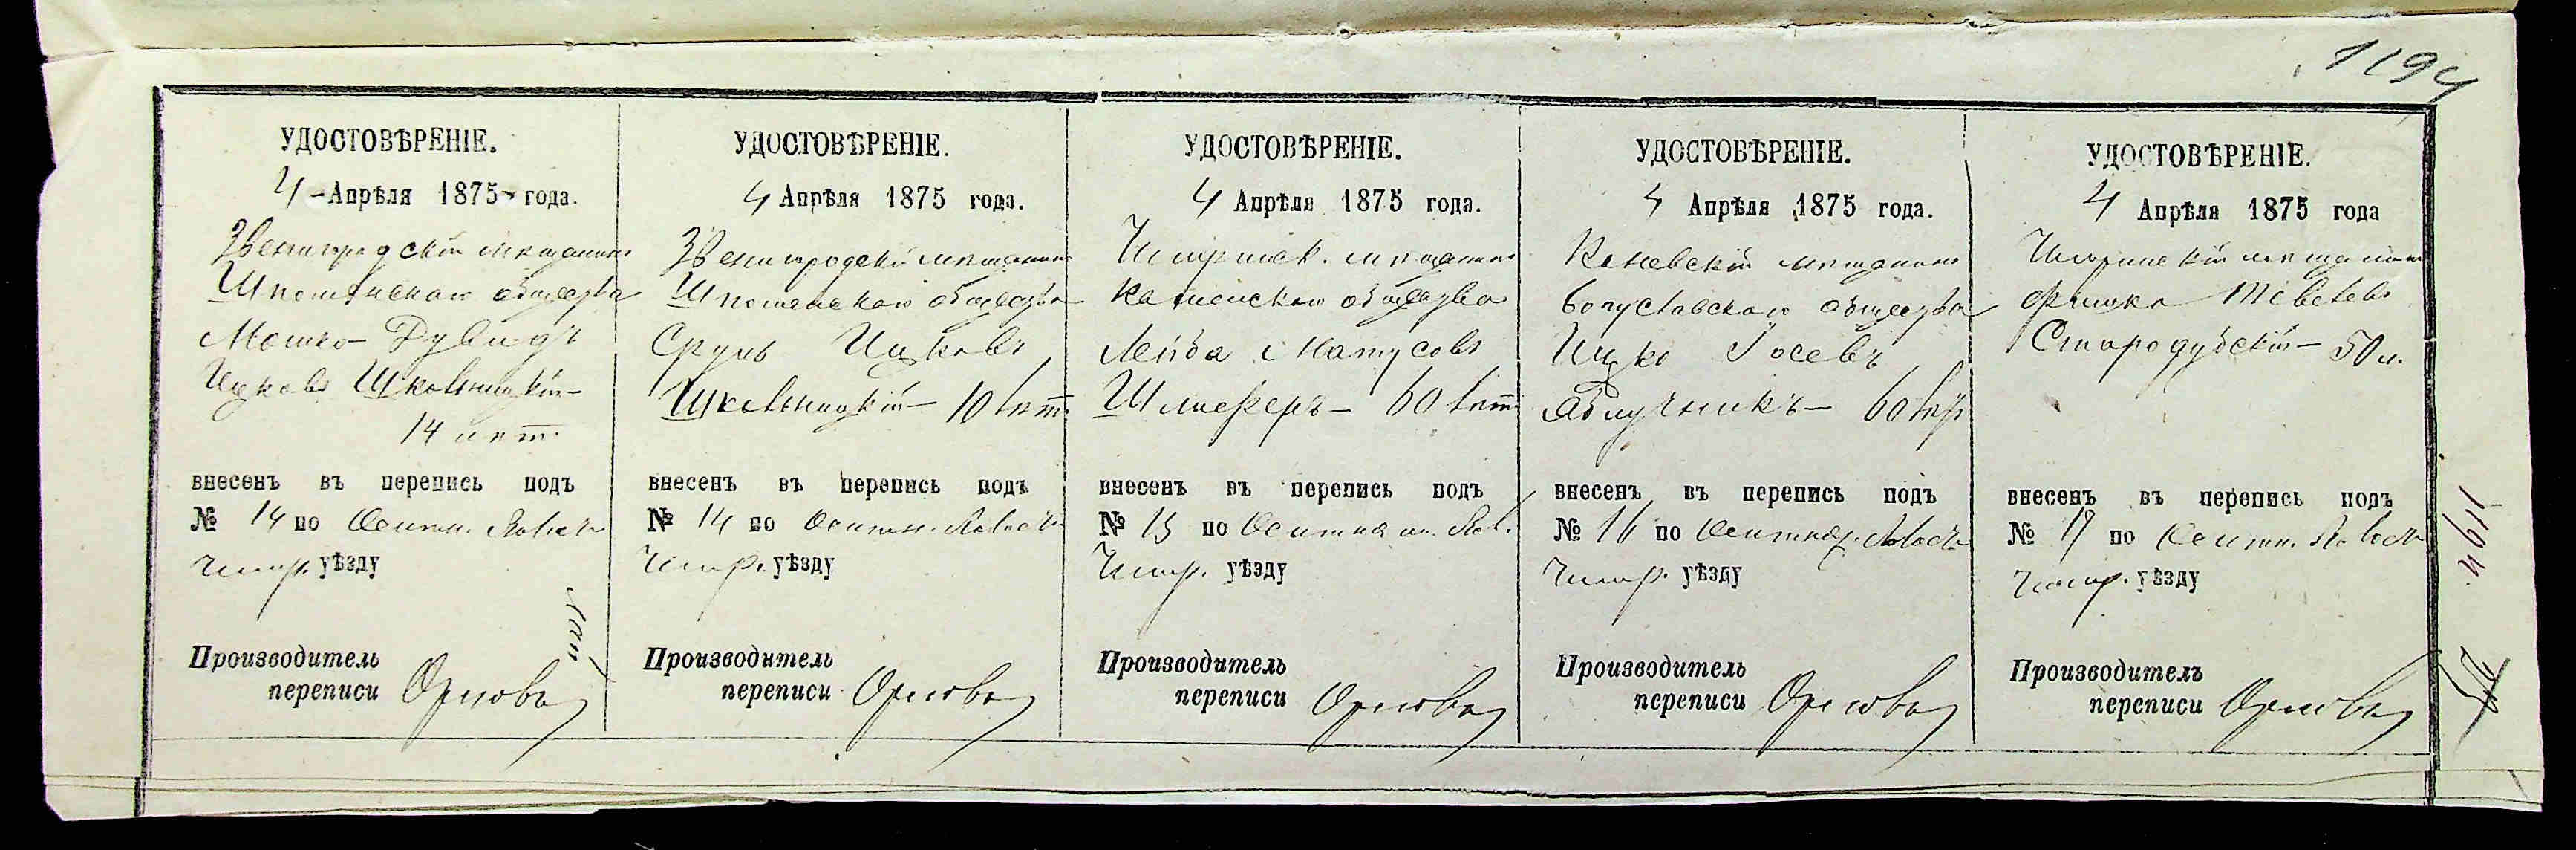 1194
УДОСТОВѢРЕНІЕ.
4 Апрѣля 1875 года.
Звенигородскій мещанинъ
Шполянскаго общества
Мошко Дувидъ
Ицковъ Школьницкій
14 лѣт.
внесенъ въ перепись подъ
№ 14 по
Чигир. уѣзду
Производитель
переписи Орловъ
УДОСТОВѢРЕНІЕ.
4 Апрѣля 1875 года.
Звенигородскій мещанинъ
Шполянскаго общества
Сруль Ицковъ
Школьницкій 10 лѣт.
внесенъ въ перепись подъ
№ 14 по
Чигир. уѣзду
Производитель
переписи Орловъ
УДОСТОВѢРЕНІЕ.
4 Апрѣля 1875 года.
Чигиринск. мещанинъ
Каменскаго общества
Лейба Матусовъ
60 лѣт.
внесенъ въ перепись подъ
№ 15 по
Чигир. уѣзду
Производитель
переписи Орловъ
УДОСТОВѢРЕНІЕ.
4 Апрѣля 1875 года.
Каневскій мещанинъ
Богуславскаго общества
Ицко Іосевъ
Яблучникъ 60 лѣт
внесенъ въ перепись подъ
№ 16 по
Чигир. уѣзду
Производитель
переписи Орловъ
УДОСТОВѢРЕНІЕ.
4 Апрѣля 1875 года
Чигиринскій мещанин
Тевелевъ
Стародубскій 50 л.
внесенъ въ перепись подъ
№ 17 по
Чигир. уѣзду
Производитель
переписи Орловъ